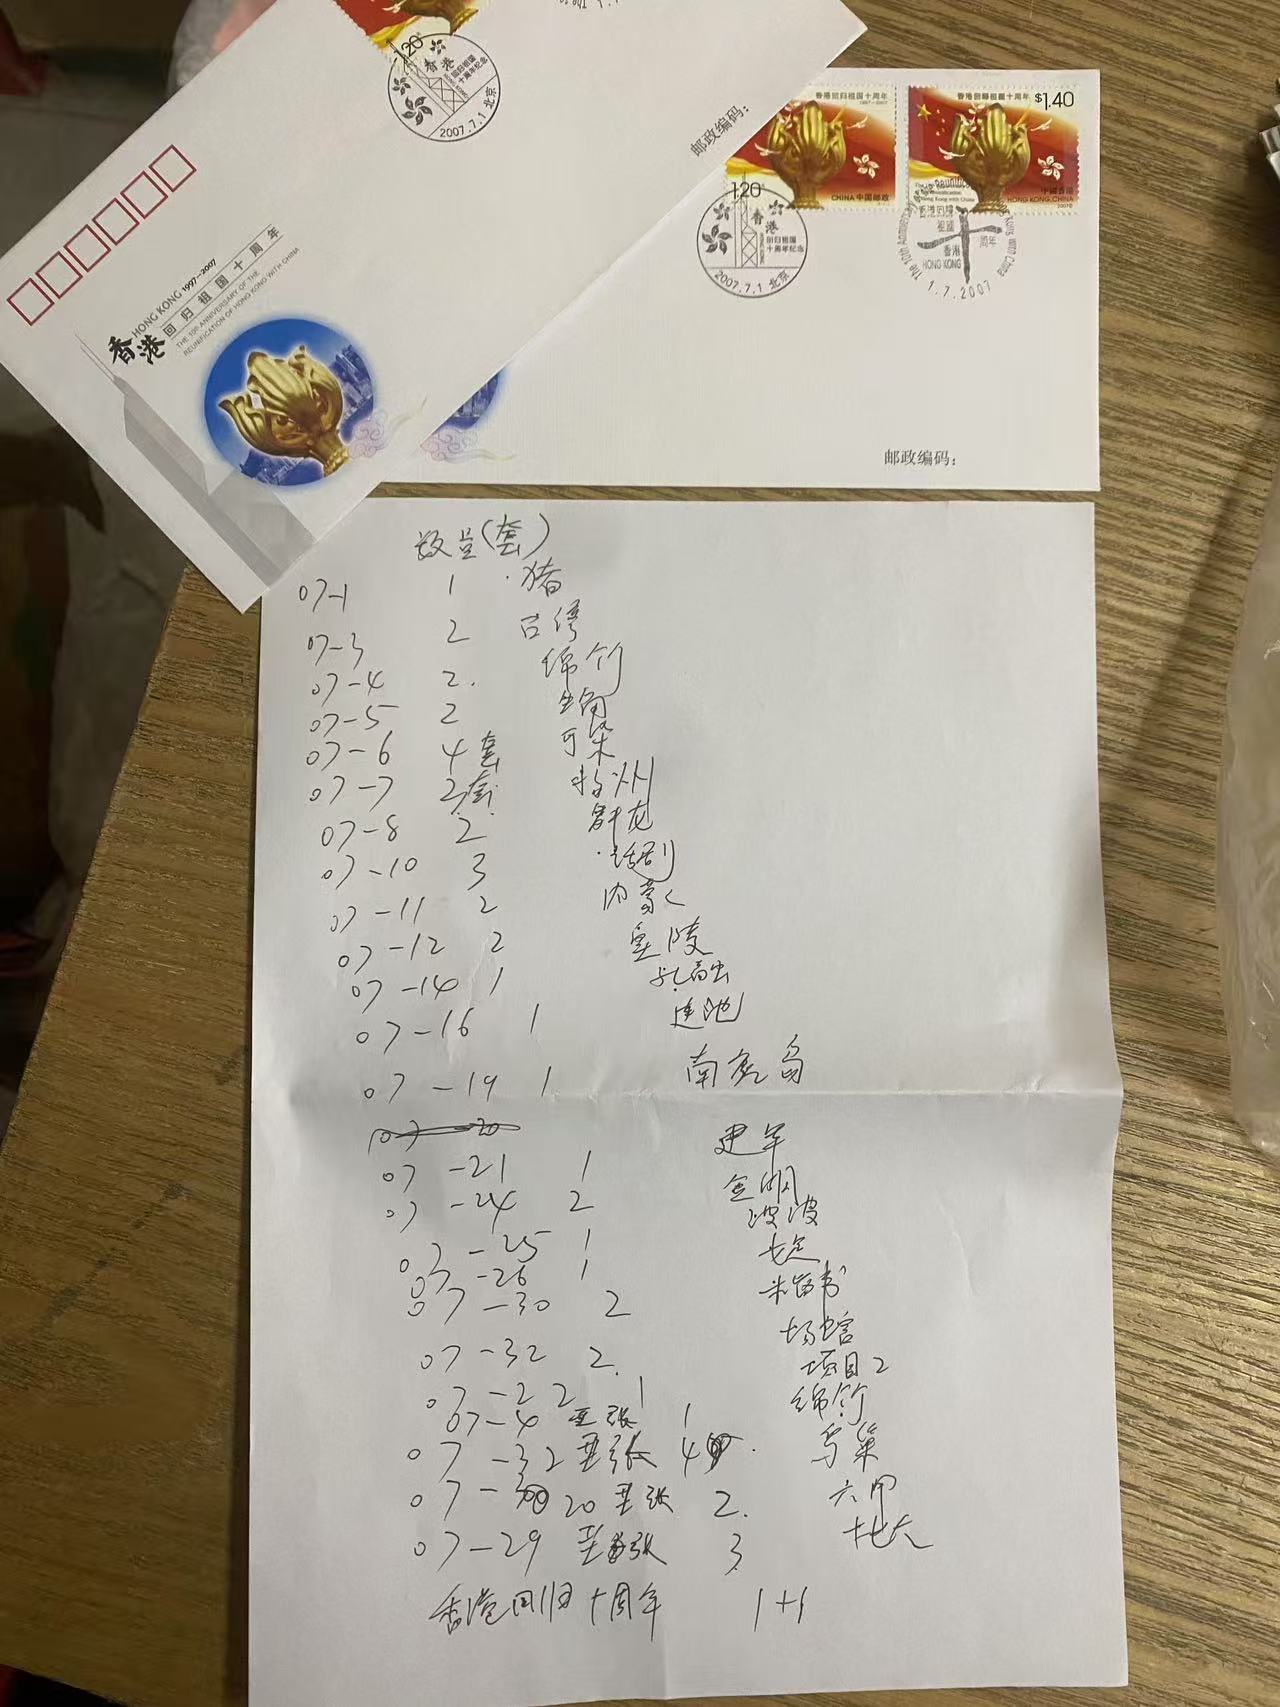 120
香港
回归祖国
十周年纪念
2007.7.1 北京
邮政编码：
HONG KONG 1997-2007
香港 回归祖国十周年
THE 10TH ANNIVERSARY OF THE
REUNIFICATION OF HONG KONG WITH CHINA
香港回归祖国十周年
1997-2007
120
CHINA 中国邮政
香港回歸祖國十周年 $1.40
中國香港
HONG KONG, CHINA
香港
回归祖国
十周年纪念
2007.7.1 北京
香港回歸
祖國
十
周年
香港
HONG KONG
1.7.2007
邮政编码：
数量(套)
07-1 1 猪
07-3 2
07-4 2. 绵竹
07-5 2
07-6 4套 可染
07-7 2套 扬州
07-8 2. 舒同
07-10 3 话剧
07-11 2 内蒙
07-12 2 皇陵
07-14 1 孔融
07-16 1 连池
07-19 1 南鹿岛
07-20
07-21 1 建军
07-24 2
07-25 1
07-26 1
07-30 2
07-32 2. 场馆
07-22 1 项目2
07-4 兰张 1 绵竹
07-32 兰张 4 鸟巢
07- 20 兰张 2.
07-29 兰张 3
香港回归十周年 1+1